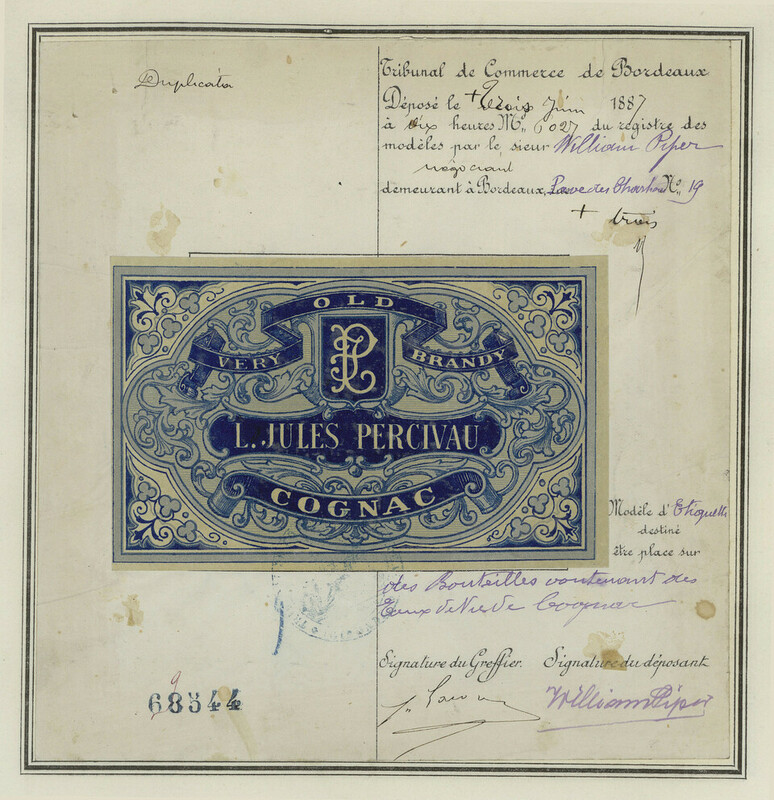 Duplicata
Tribunal de Commerce de Bordeaux
Déposé le + Trois Juin 1887
à dix heures No. 6027 du registre des
modèles par le sieur William Piper
négociant
demeurant à Bordeaux, Pavé des Chartrons No. 19
+ trois
OLD
VERY BRANDY
L. JULES PERCIVAU
COGNAC
Modèle d'Etiquette
destiné
être place sur
des Bouteilles contenant des
Eaux de Vie de Cognac
Signature du Greffier. Signature du déposant
William Piper
9
68544